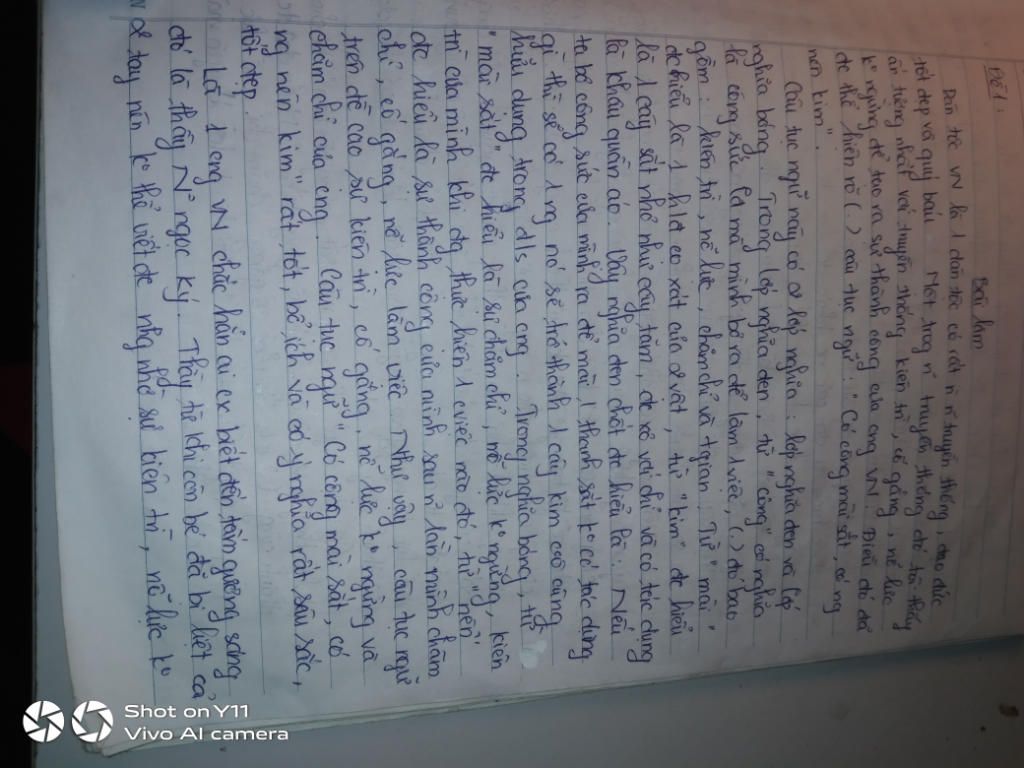 Đề 1.
Bài làm
Dân tộc VN là 1 dân tộc có rất n' n~ truyền thống, đạo đức
tốt đẹp và quý báu. Một trong n~ truyền thống đó ta thấy
ấn tượng nhất với truyền thống kiên trì, cố gắng, nỗ lực
k° ngừng để tạo ra sự thành công của cng VN. Điều đó đã
đc thể hiện rõ (.) câu tục ngữ: "Có công mài sắt, có ng
nên kim".
Câu tục ngữ này có 2 lớp nghĩa: lớp nghĩa đen và lớp
nghĩa bóng. Trong lớp nghĩa đen, từ "công" có nghĩa
là công sức là mà mình bỏ ra để làm 1 việc, (.) đó bao
gồm: kiên trì, nỗ lực, chăm chỉ và t gian. Từ "mài"
đc hiểu là 1 hđ cọ xát của 2 vật, từ "kim" đc hiểu
là 1 cây sắt nhỏ như cây tăm, đc xỏ với chỉ và có tác dụng
là khâu quần áo. Vậy nghĩa đen chốt đc hiểu là: Nếu
ta bỏ công sức của mình ra để mài 1 thanh sắt k° có tác dụng
gì thì sẽ có 1 ng nó sẽ trở thành 1 cây kim vô cùng
hữu dụng trong đ/s của cng. Trong nghĩa bóng, từ
"mài sắt" đc hiểu là sự chăm chỉ, nỗ lực k° ngừng, kiên
trì của mình khi đã thực hiện 1 cviệc nào đó, từ "nên"
đc hiểu là sự thành công của mình sau n~ lần mình chăm
chỉ, cố gắng, nỗ lực làm việc. Như vậy, câu tục ngữ
trên đề cao sự kiên trì, cố gắng, nỗ lực k° ngừng và
chăm chỉ của cng. Câu tục ngữ "Có công mài sắt, có
ng nên kim" rất tốt, bổ ích và có ý nghĩa rất sâu sắc,
tốt đẹp.
Là 1 cng VN chắc hẳn ai cx biết đến tấm gương sáng
đó là thầy N~ ngọc Ký. Thầy từ khi còn bé đã bị liệt cả
2 tay nên k° thể viết đc nhg nhờ sự kiên trì, nỗ lực k°
Shot on Y11
Vivo AI camera